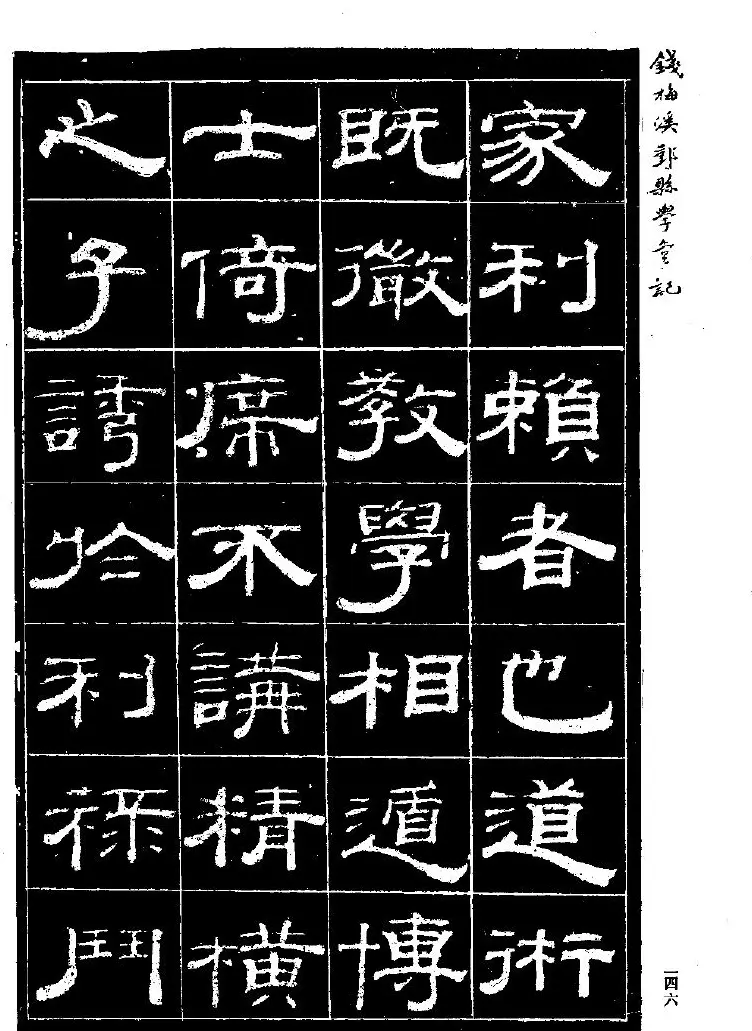 錢梅溪鄞縣學宮記
家利賴者也道術
既徹教學相遁博
士倚席不講精橫
之子誘於利祿鬥
一四六